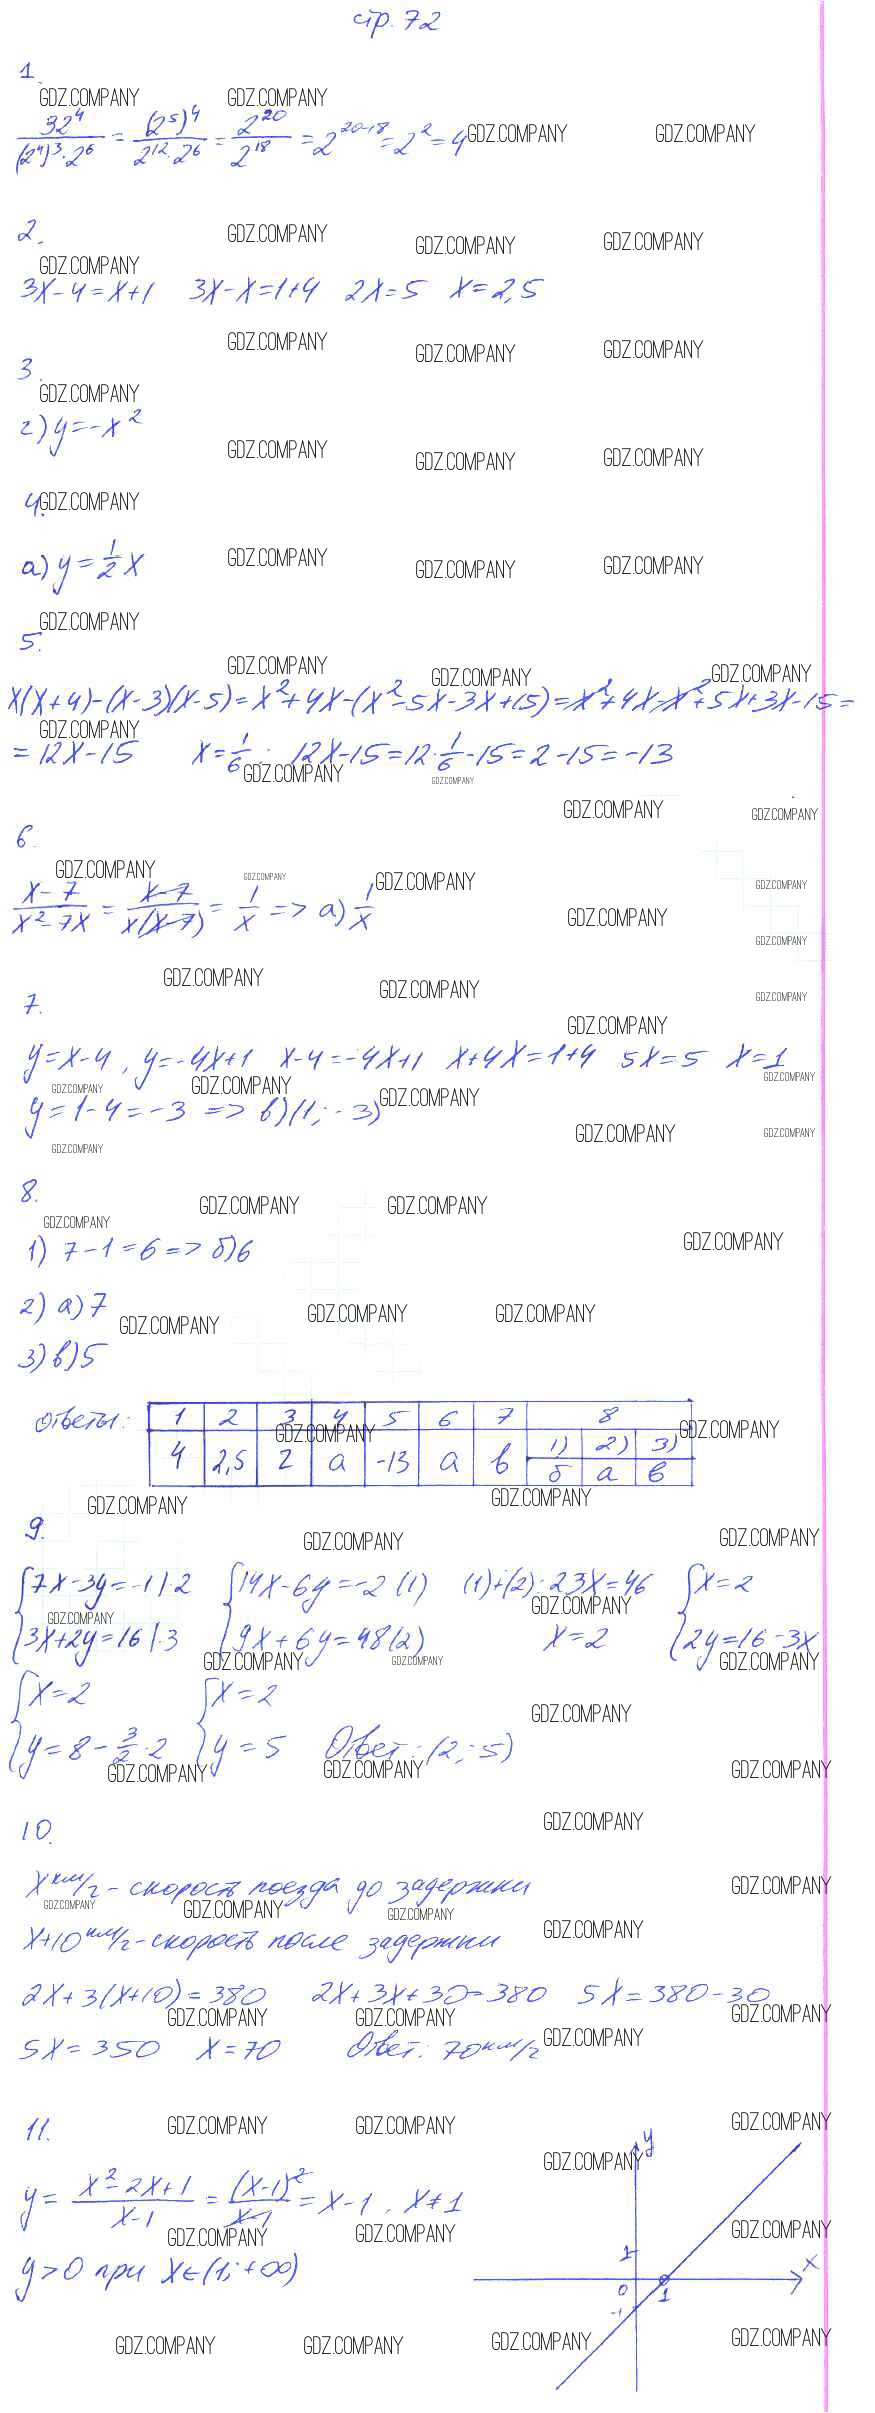 стр. 72
1.
32⁴/((2⁴)³·2⁶) = (2⁵)⁴/(2¹²·2⁶) = 2²⁰/2¹⁸ = 2²⁰⁻¹⁸ = 2² = 4
2.
3x-4=x+1 3x-x=1+4 2x=5 x=2,5
3.
г) y=-x²
4.
а) y=1/2 x
5.
x(x+4)-(x-3)(x-5)=x²+4x-(x²-5x-3x+15)=x²+4x-x²+5x+3x-15=
=12x-15 x=1/6: 12x-15=12·1/6-15=2-15=-13
6.
(x-7)/(x²-7x) = (x-7)/(x(x-7)) = 1/x => а) 1/x
7.
y=x-4, y=-4x+1 x-4=-4x+1 x+4x=1+4 5x=5 x=1
y=1-4=-3 => в) (1;-3)
8.
1) 7-1=6 => б) 6
2) а) 7
3) в) 5
ответы: 1 2 3 4 5 6 7 8
4 2,5 г а -13 а в 1) 2) 3)
б а в
9.
{7x-3y=-1 |·2 {14x-6y=-2 (1) (1)+(2): 23x=46 {x=2
{3x+2y=16 |·3 {9x+6y=48 (2) x=2 {2y=16-3x
{x=2 {x=2
{y=8-3/2·2 {y=5 Ответ: (2; 5)
10.
x км/г - скорость поезда до задержки
x+10 км/г - скорость после задержки
2x+3(x+10)=380 2x+3x+30=380 5x=380-30
5x=350 x=70 Ответ: 70 км/г
11.
y = (x²-2x+1)/(x-1) = (x-1)²/(x-1) = x-1, x≠1
y>0 при x∈(1;+∞)
y
1
x
0
1
-1
GDZ.COMPANY